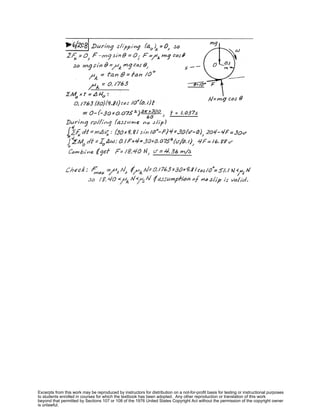 ▶6/258 During slipping (aₓ)_G=0, so
ΣFₓ=0, F-mg sinθ=0; F=μₖmg cosθ
so mg sinθ=μₖmg cosθ,
μₖ=tanθ=tan 10°
μₖ=0.1763
ΣM_G·t=ΔH_G:
0.1763(30)(9.81)cos 10°(0.1)t
=0-(-30×0.075²)(2π×300/60), t=1.037s
During rolling (assume no slip)
∫ΣFₓdt=mΔv̄ₓ: (30×9.81 sin10°-F)4=30(v-0), 204-4F=30v
∫ΣM_G dt=I_GΔω: 0.1F×4=30×0.075²(v/0.1), 4F=16.88v
Combine & get F=18.40 N, v=4.36 m/s
Check: F_max=μₛN, & μₖN=0.1763×30×9.81cos10°=51.1N<μₛN
so 18.40<μₖN<μₛN & assumption of no slip is valid.
mg
ω
0.1 m
G
θ=10°
F
N=mg cosθ
Excerpts from this work may be reproduced by instructors for distribution on a not-for-profit basis for testing or instructional purposes
to students enrolled in courses for which the textbook has been adopted. Any other reproduction or translation of this work
beyond that permitted by Sections 107 or 108 of the 1976 United States Copyright Act without the permission of the copyright owner
is unlawful.